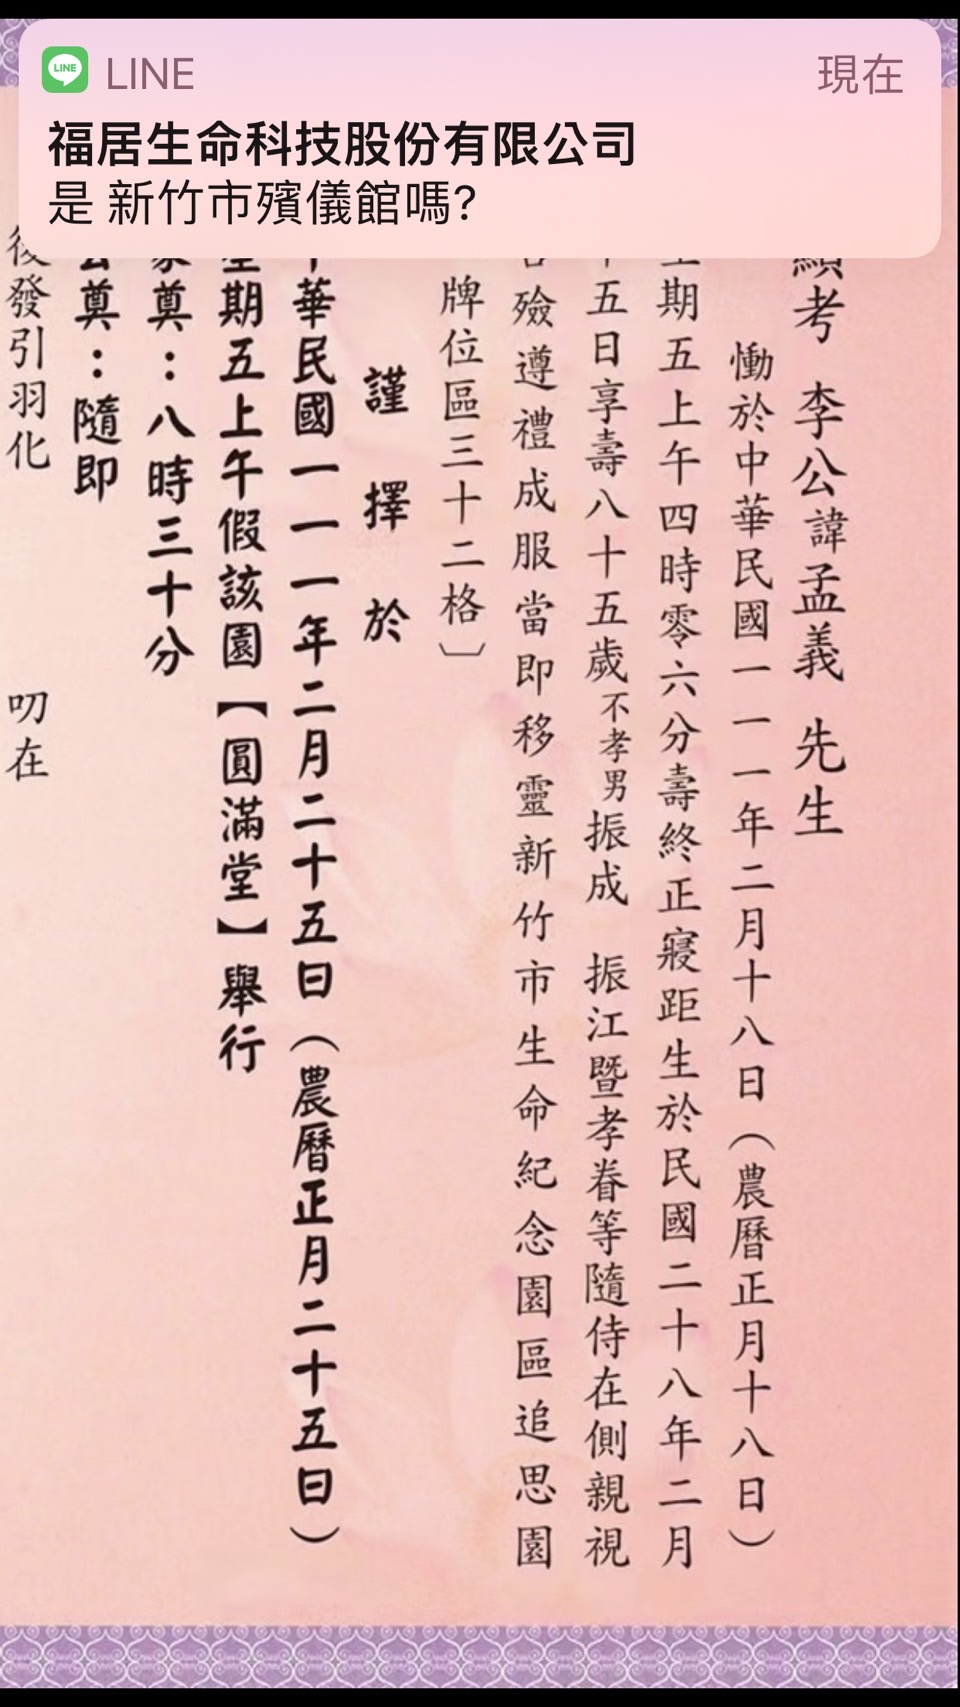 LINE
現在
福居生命科技股份有限公司
是 新竹市殯儀館嗎?
顯考 李公諱孟義 先生
慟於中華民國一一一年二月十八日（農曆正月十八日）
期五上午四時零六分壽終正寢距生於民國二十八年二月
五日享壽八十五歲不孝男振成 振江暨孝眷等隨侍在側親視
殮遵禮成服當即移靈新竹市生命紀念園區追思園
牌位區三十二格〕
謹擇於
華民國一一一年二月二十五日（農曆正月二十五日）
期五上午假該園【圓滿堂】舉行
奠：八時三十分
奠：隨即
後發引羽化 叨在